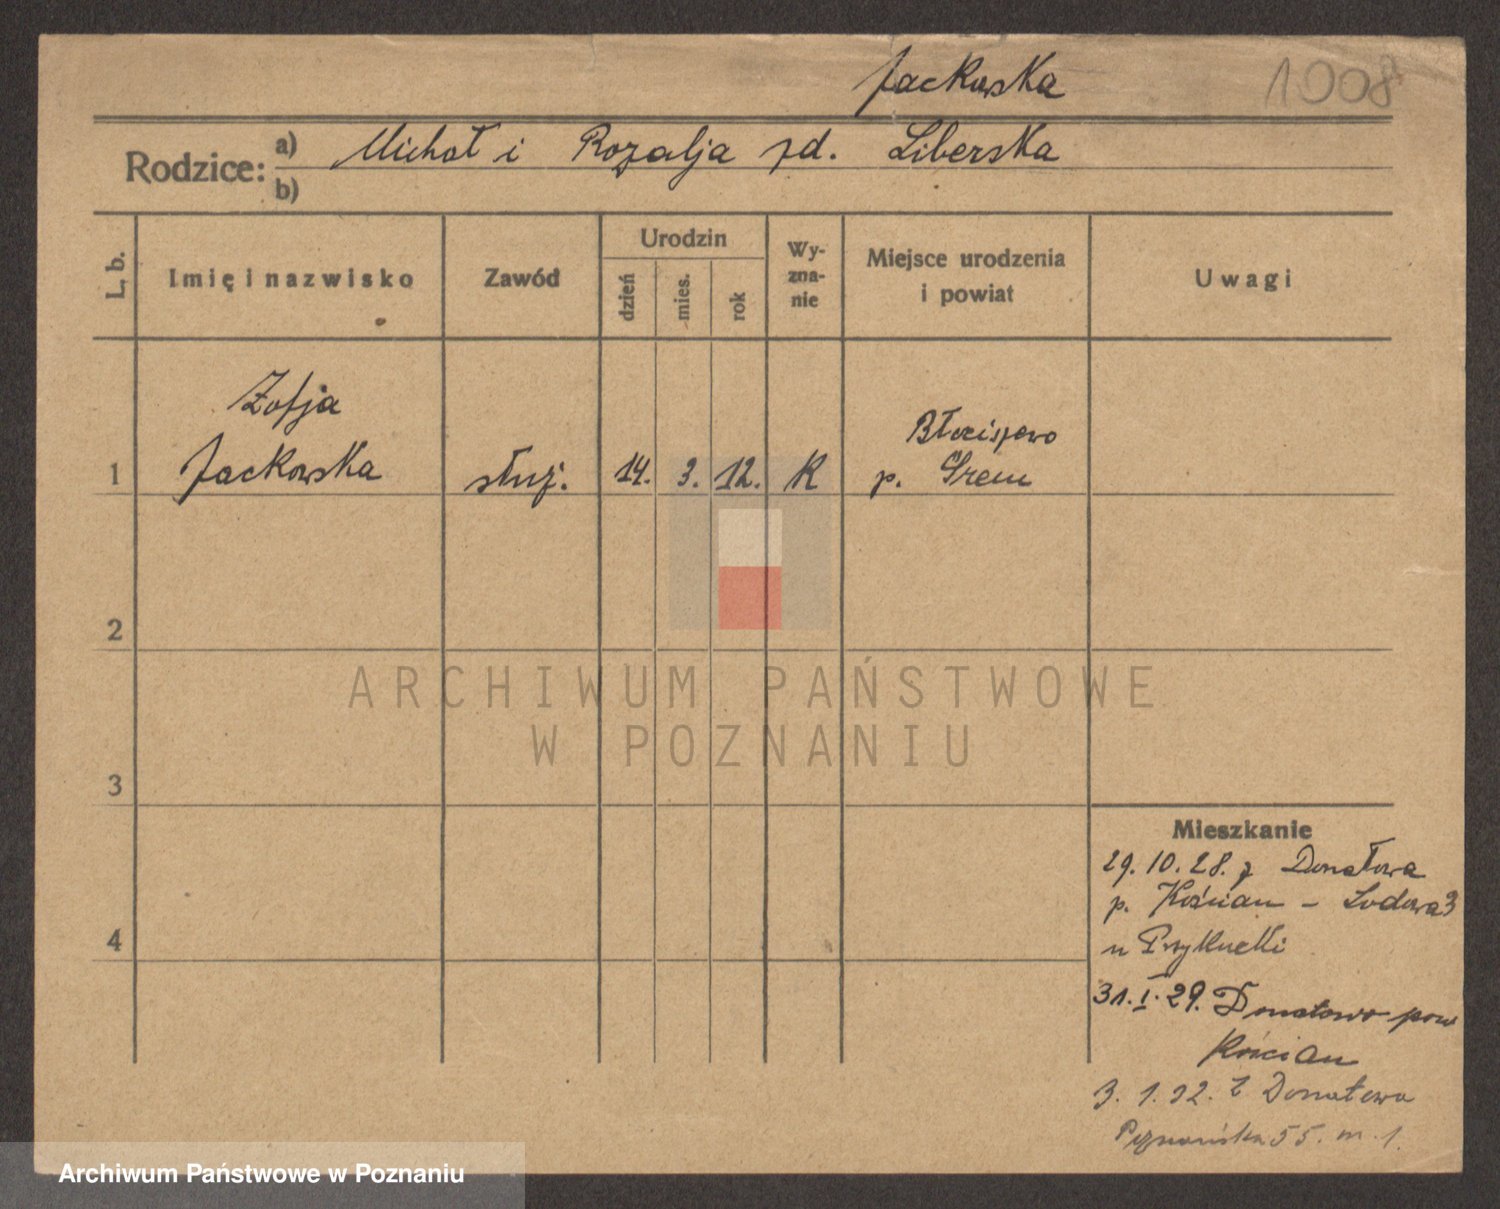 Jackowska 1008
Rodzice: a) Michał i Rozalja zd. Liberska
b)
L. b. Imię i nazwisko Zawód Urodzin dzień mies. rok Wyznanie Miejsce urodzenia i powiat Uwagi
Zofja
Jackowska
1 służ. 14. 3. 12. K Błociszewo
p. Śrem
2
3
4
Mieszkanie
29. 10. 28. z Donatowa
p. Kościan - Lodowa 3
u Przykucki
31. I. 29. Donatowo pow
Kościan
3. 1. 32. z Donatowa
Poznańska 55. m. 1.
ARCHIWUM PAŃSTWOWE
W POZNANIU
Archiwum Państwowe w Poznaniu